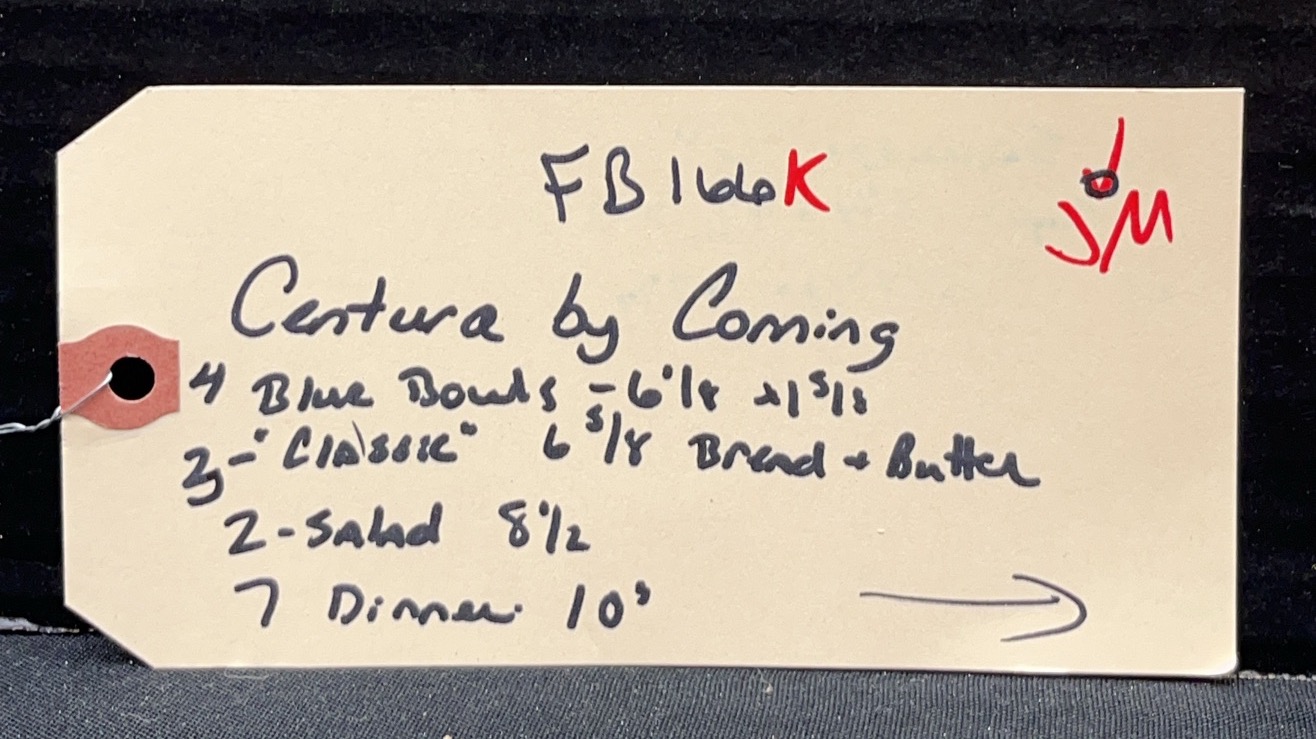 FB166K
JM
Centura by Corning
4 Blue Bowls - 6 1/8 x 1 5/8
3 - "Classic" 6 5/8 Bread + Butter
2 - Salad 8 1/2
7 Dinner 10"